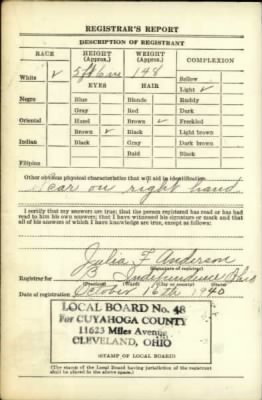 REGISTRAR'S REPORT
DESCRIPTION OF REGISTRANT
RACE HEIGHT (Approx.) WEIGHT (Approx.) COMPLEXION
White ✓ 5 ft 6 in 148 Sallow
EYES HAIR Light ✓
Negro Blue Blonde Ruddy
Gray Red Dark
Oriental Hazel Brown ✓ Freckled
Brown ✓ Black Light brown
Indian Black Gray Dark brown
Bald Black
Filipino
Other obvious physical characteristics that will aid in identification
Scar on right hand
I certify that my answers are true; that the person registered has read or has had
read to him his own answers; that I have witnessed his signature or mark and that
all of his answers of which I have knowledge are true, except as follows:
Julia F Anderson
(Signature of registrar)
Registrar for B Independence Ohio
(Precinct) (Ward) (City or county) (State)
Date of registration October 16th 1940
LOCAL BOARD No. 48
For CUYAHOGA COUNTY
11623 Miles Avenue
CLEVELAND, OHIO
(STAMP OF LOCAL BOARD)
(The stamp of the Local Board having jurisdiction of the registrant
shall be placed in the above space.)